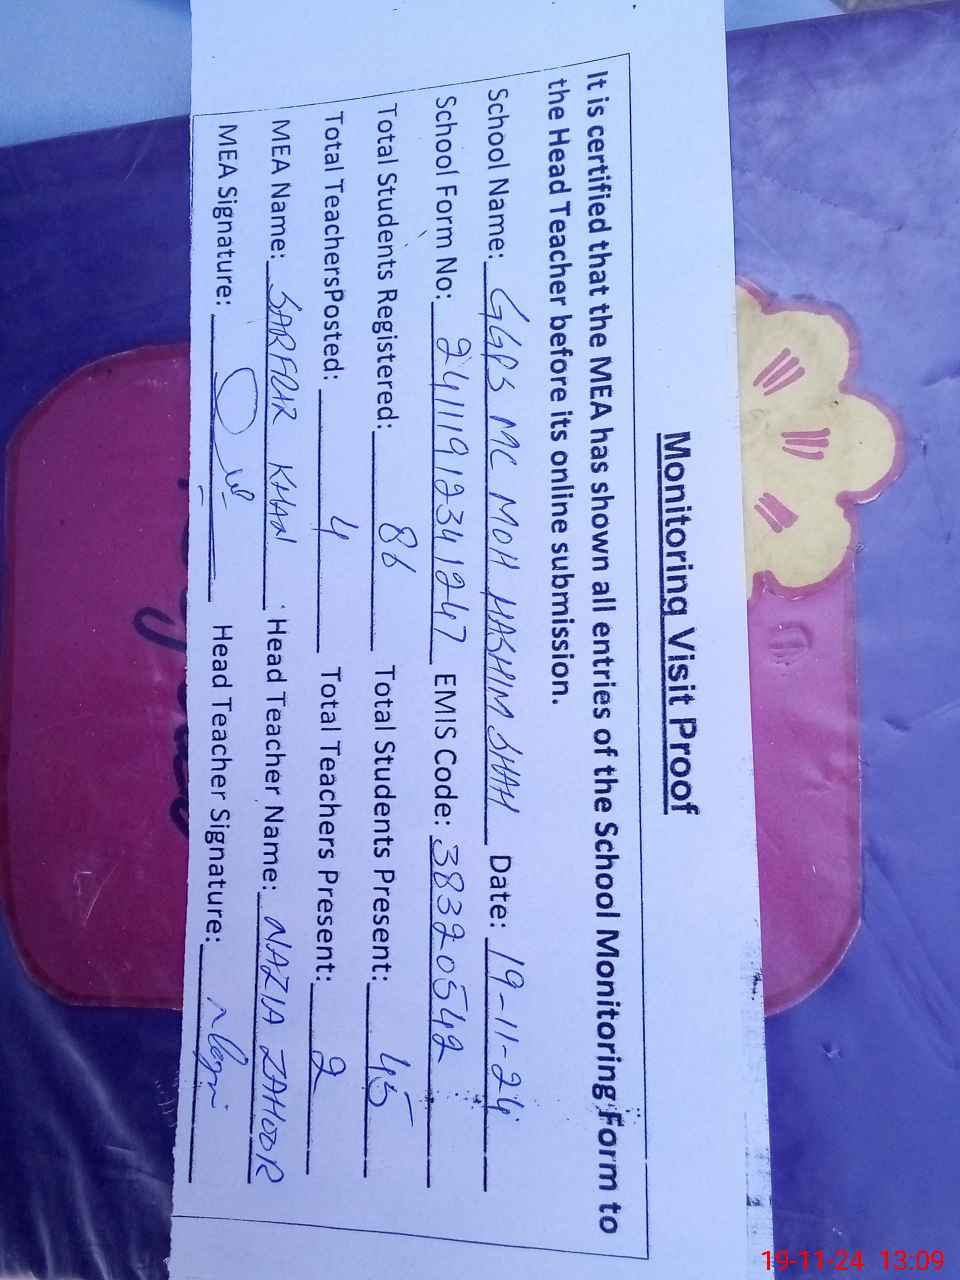 Monitoring Visit Proof
It is certified that the MEA has shown all entries of the School Monitoring Form to
the Head Teacher before its online submission.
School Name: GGPS MC MOH HASHIM SHAH Date: 19-11-24
School Form No: 24111912341247 EMIS Code: 38320542
Total Students Registered: 86 Total Students Present: 45
Total TeachersPosted: 4 Total Teachers Present: 2
MEA Name: SARFRAR KHAN Head Teacher Name: NAZIA ZAHOOR
MEA Signature: Head Teacher Signature:
19-11-24 13:09